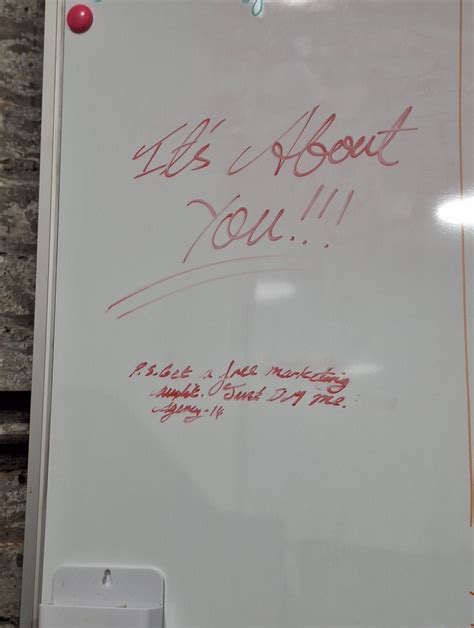 It's About
You!!!
P.S. Get a free marketing
Just DM me.
Agency-14